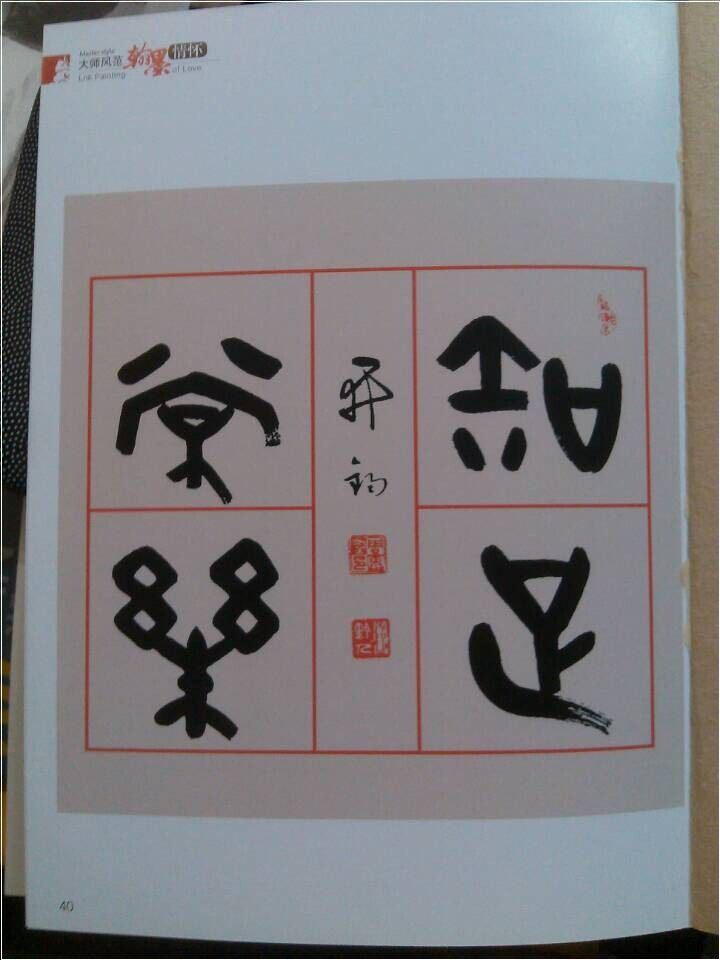 Master style
大师风范 翰墨 情怀
Painting of Love
知足
常樂
40